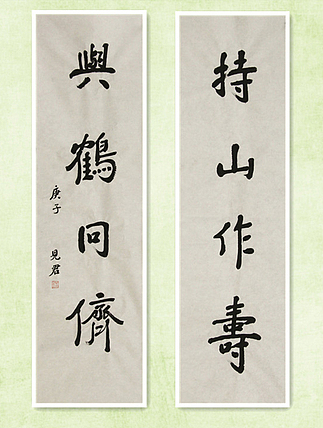 持山作壽
與鶴同儕
庚子
見君